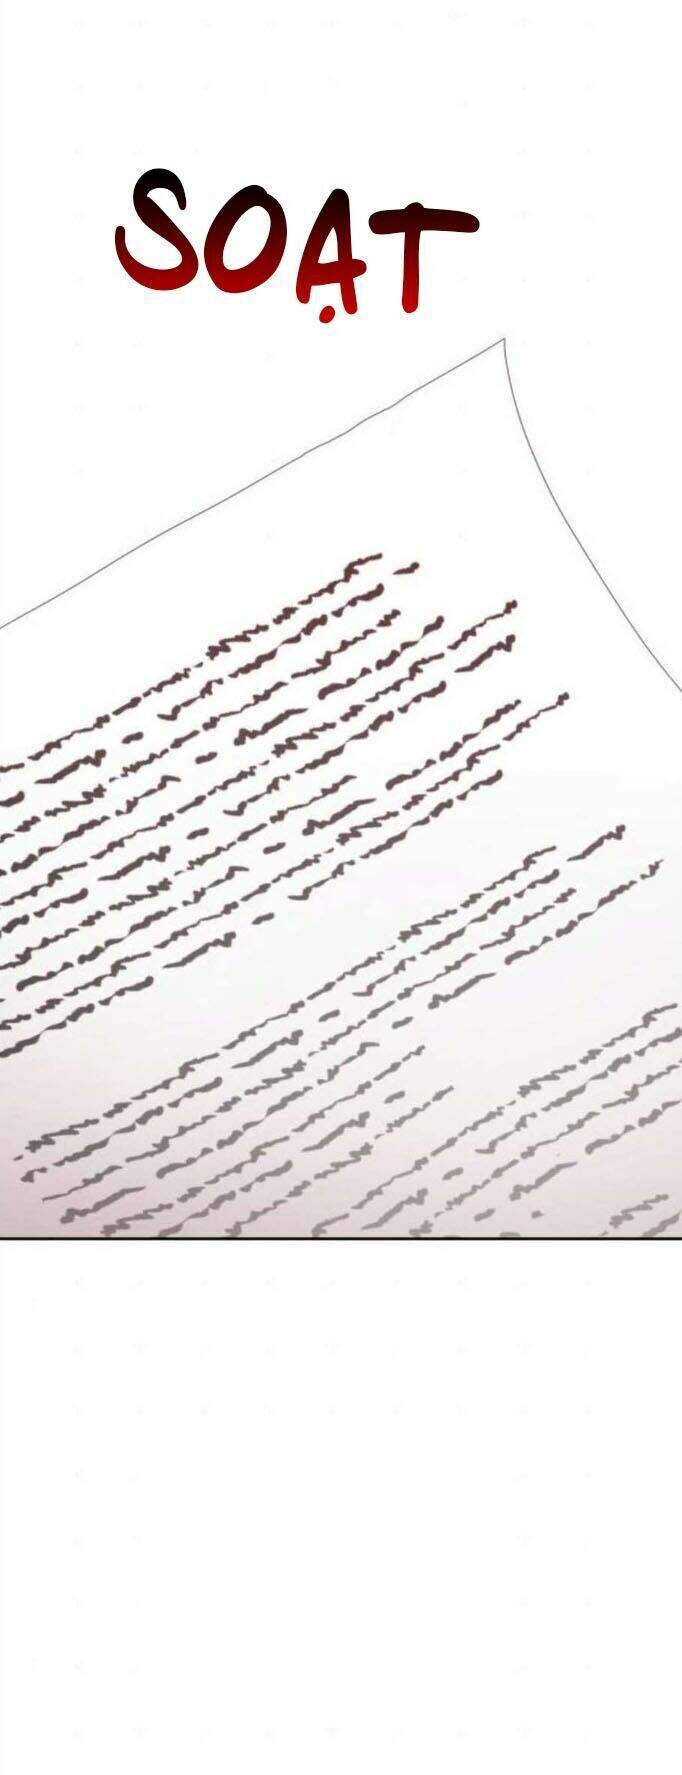 SOẠT